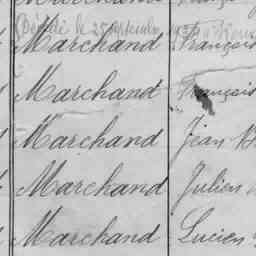 (Décédé le 25 septembre
Marchand François
Marchand François
Marchand Jean B
Marchand Julien
Marchand Lucien